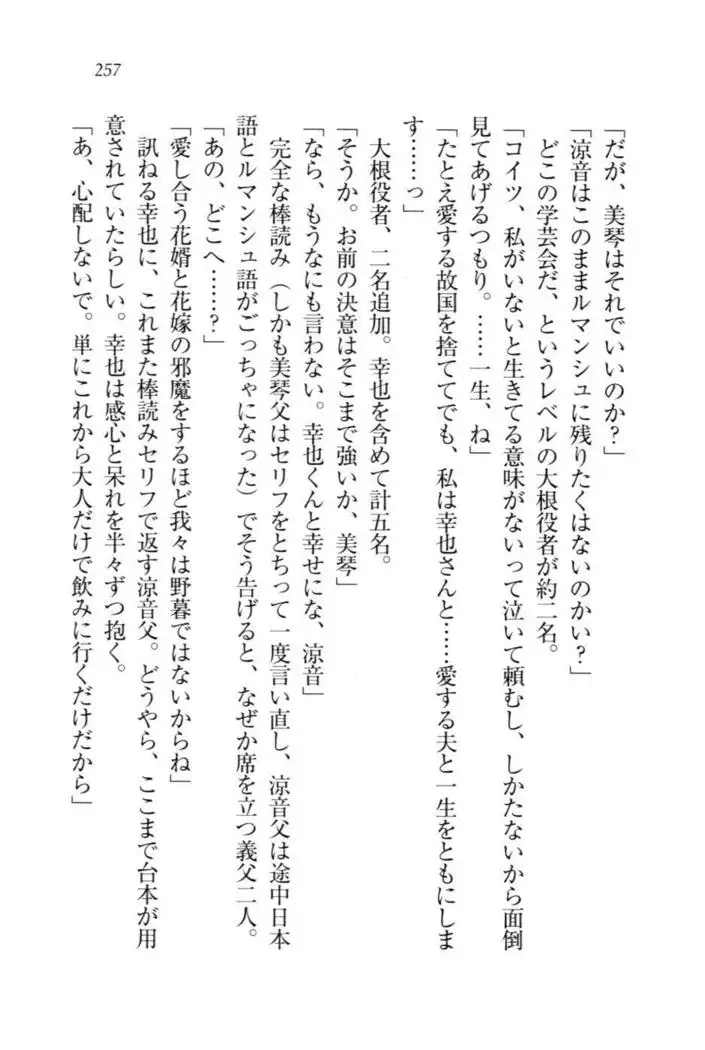 257
「だが、美琴はそれでいいのか?」
「涼音はこのままルマンシュに残りたくはないのかい?」
どこの学芸会だ、というレベルの大根役者が約二名。
「コイツ、私がいないと生きてる意味がないって泣いて頼むし、しかたないから面倒
見てあげるつもり。……一生、ね」
「たとえ愛する故国を捨ててでも、私は幸也さんと……愛する夫と一生をともにしま
す……っ」
大根役者、二名追加。幸也を含めて計五名。
「そうか。お前の決意はそこまで強いか、美琴」
「なら、もうなにも言わない。幸也くんと幸せにな、涼音」
完全な棒読み(しかも美琴父はセリフをとちって一度言い直し、涼音父は途中日本
語とルマンシュ語がごっちゃになった)でそう告げると、なぜか席を立つ義父二人。
「あの、どこへ……?」
「愛し合う花婿と花嫁の邪魔をするほど我々は野暮ではないからね」
訊ねる幸也に、これまた棒読みセリフで返す涼音父。どうやら、ここまで台本が用
意されていたらしい。幸也は感心と呆れを半々ずつ抱く。
「あ、心配しないで。単にこれから大人だけで飲みに行くだけだから」